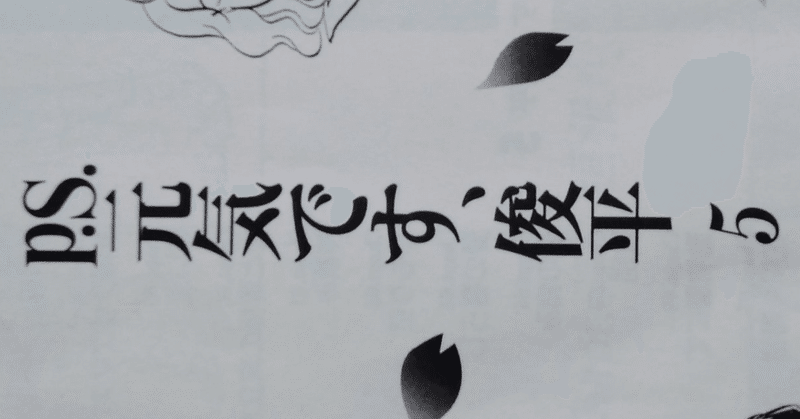 P.S.元気です、俊平 5